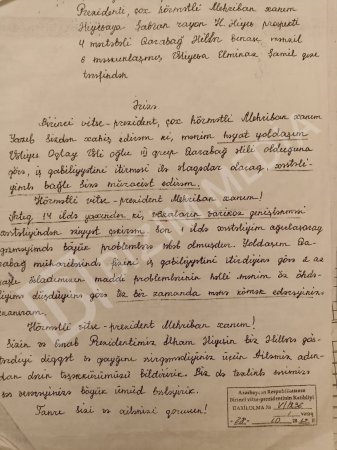 Prezidenti, çox hörmətli Mehriban xanım
Əliyevaya Sabran rayon H. Əliyev prospekti
4 mərtəbəli Qarabağ Əlilləri binası, mənzil
6 məskunlaşmış Vəliyeva Elminaz Şamil qızı
tərəfindən
Ərizə
Birinci vitse-prezident, çox hörmətli Mehriban xanım
Yazıb Sizdən xahiş edirəm ki, mənim həyat yoldaşım
Vəliyev Oqtay Vəli oğlu II qrup Qarabağ əlili olduğuna
görə, iş qabiliyyətini itirməsi ilə əlaqədar olaraq, xəstəli-
yimlə bağlı Sizə müraciət edirəm.
Hörmətli vitse-prezident Mehriban xanım!
Artıq 14 ilə yaxındır ki, varikoz genişlənməsi
xəstəliyindən əziyyət çəkirəm. Son 1 ildə xəstəliyim ağırlaşaraq
böyük problemlərə səbəb olmuşdur. Yoldaşım Qa-
rabağ müharibəsində fiziki iş qabiliyyətini itirdiyinə görə
maddi problemlərinin həlli mənim öz öhdə-
liyimə düşdüyünə görə Siz bir zamanda mənə kömək edəcəyinizə
inanıram.
Hörmətli vitse-prezident Mehriban xanım!
Sizin və cənab Prezidentimiz İlham Əliyevin biz əlillərə gös-
tərdiyi diqqət və qayğını əsirgəmədiyiniz üçün ailəmiz adın-
dan dərin təşəkkürümüzü bildiririk. Biz də
böyük ümid bəsləyirik.
Tanrı Sizi və ailənizi qorusun!
Azərbaycan Respublikasının
Birinci vitse-prezidentinin Katibliyi
DAXİLOLMA №
vərəq